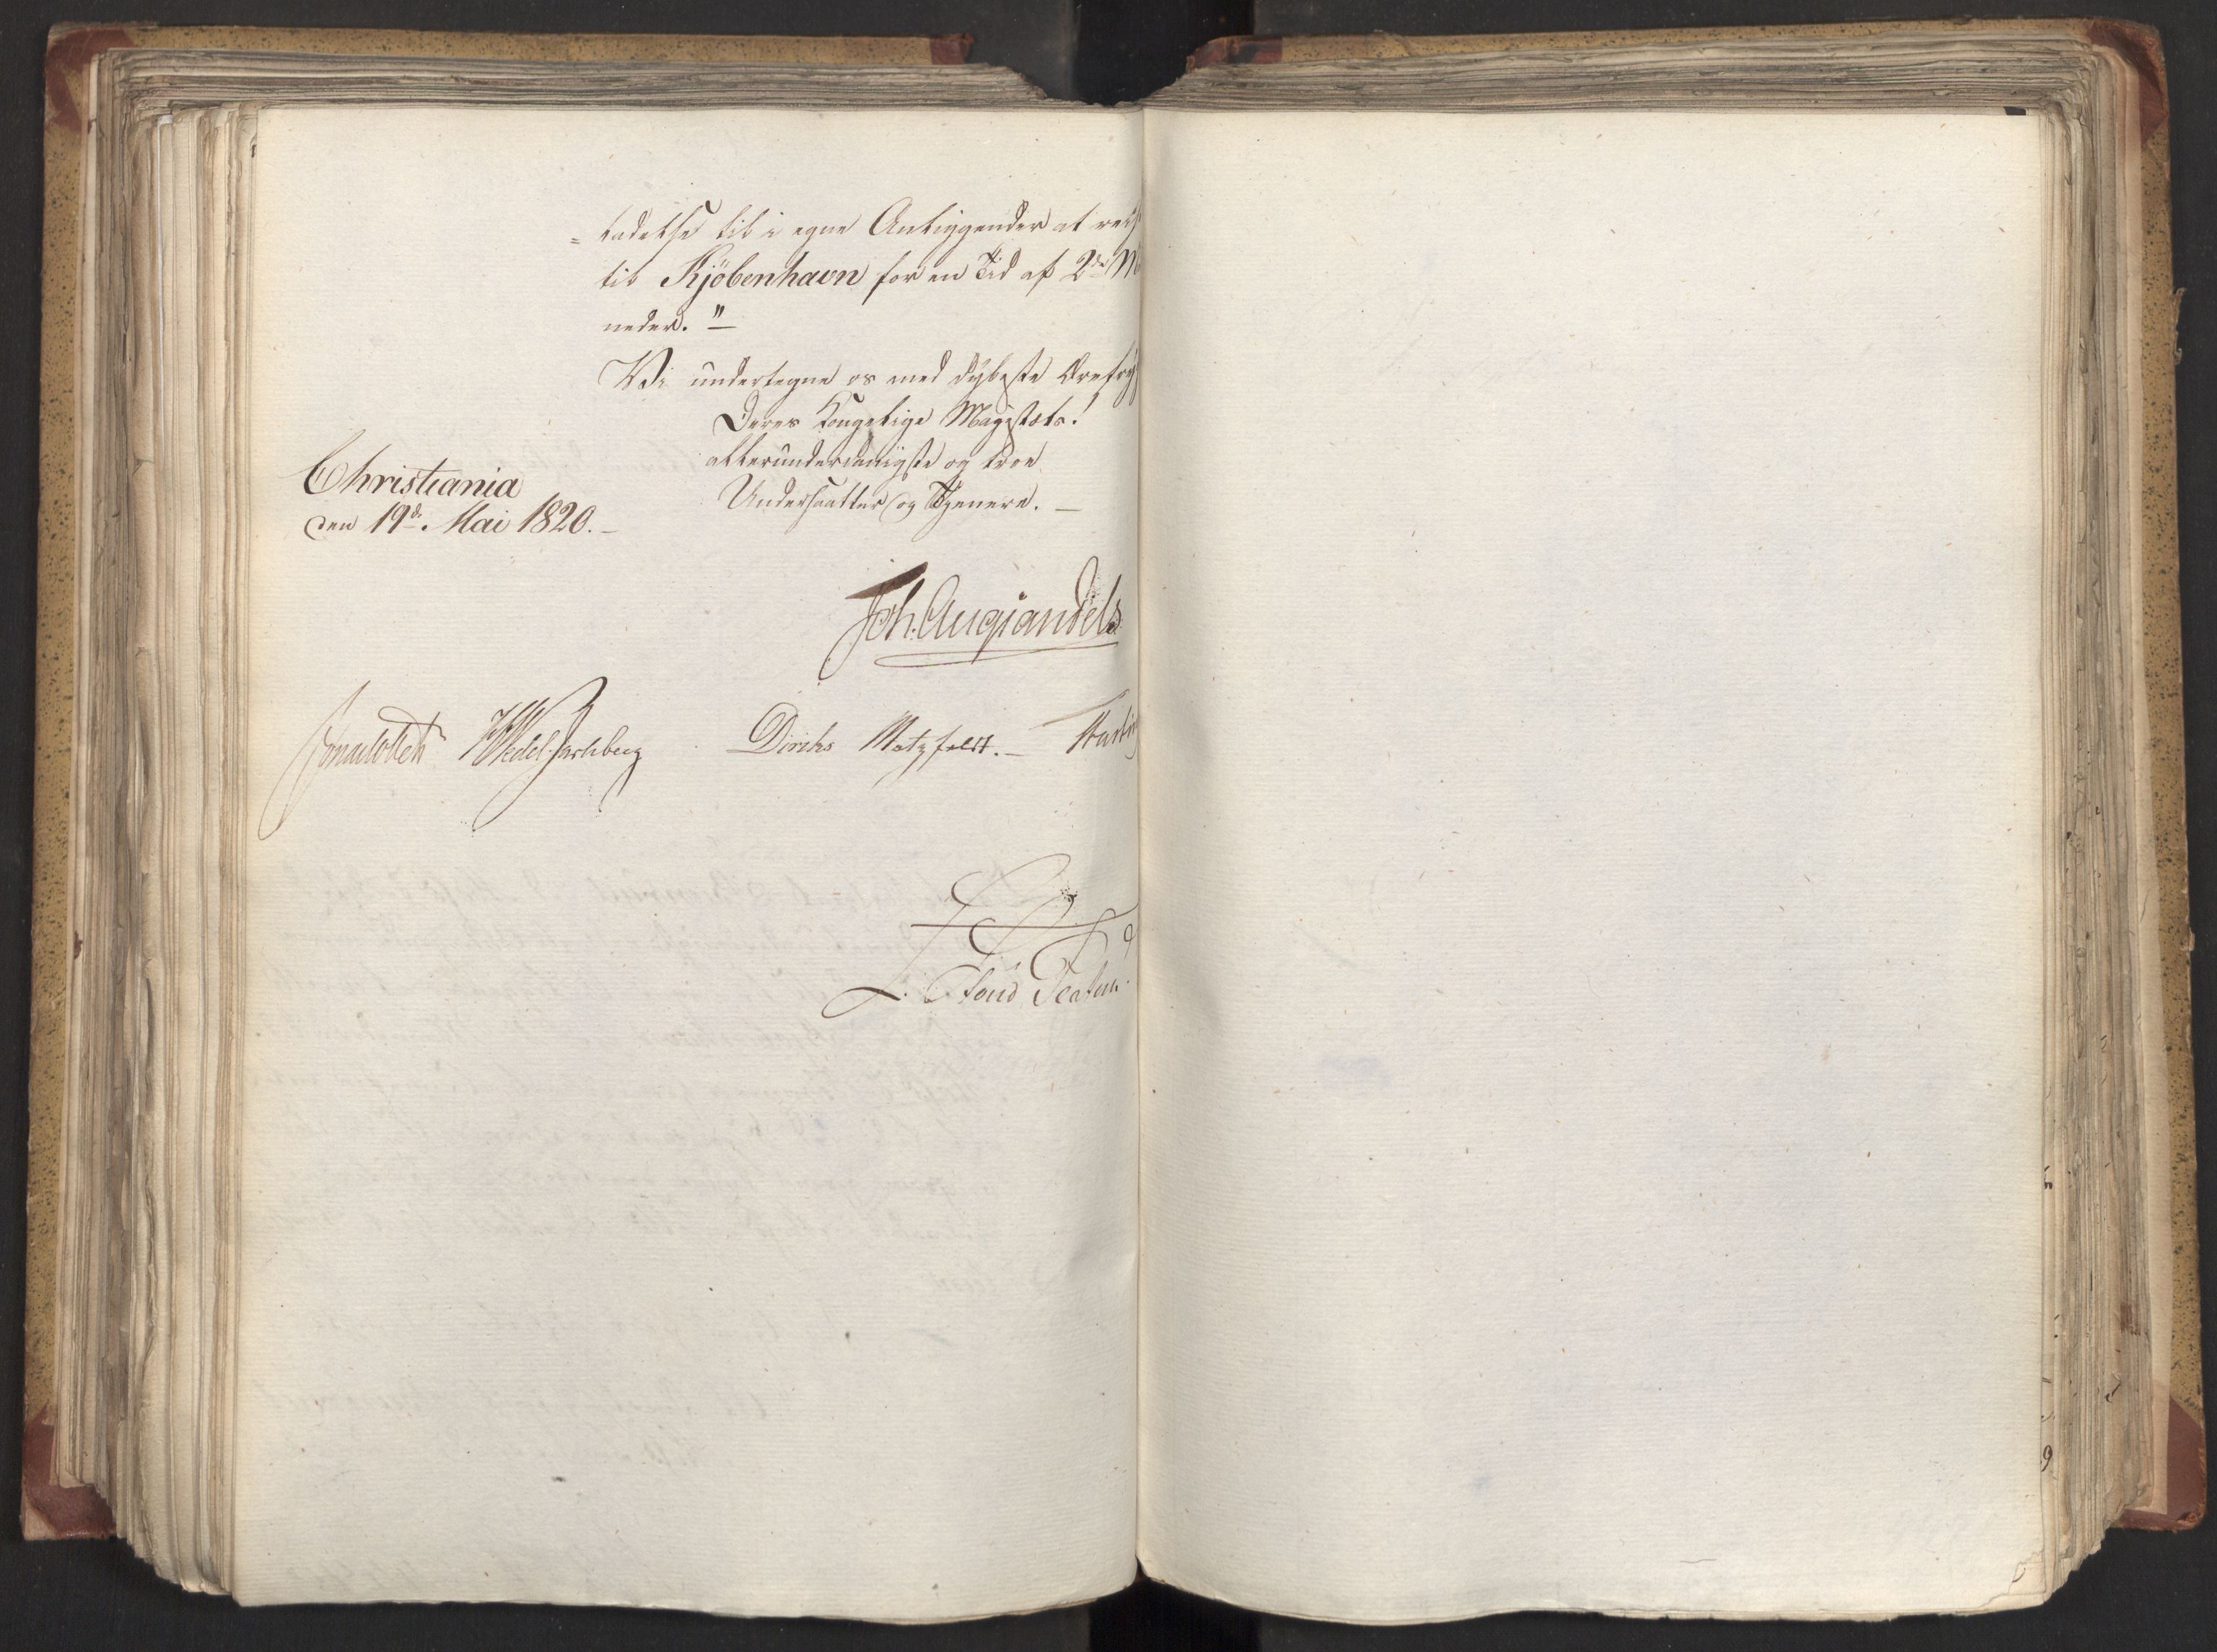 =ladelse til i egne Anliggender at reis
til Kjöbenhavn for en Tid af 2de M
neder."
Vi undertegne os med dybeste Ærefryg
Deres Kongelige Majestæts!
allerunderdanigste og troe
Undersaatter og Tjenere.
Christiania
den 19de Mai 1820.
Joh. Aug Sandels
Jonas Collett HWedel Jarlsberg Diriks Motzfeldt.